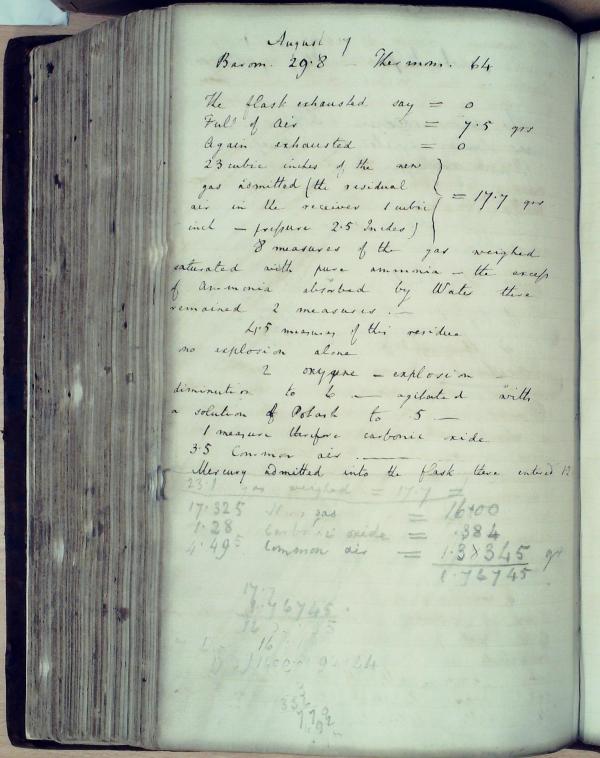 August 7
Barom. 29.8 – Thermom. 64
The flask exhausted say = 0
Full of Air = 7.5 grs
Again exhausted = 0
23 cubic inches of the new
gas admitted (the residual
air in the receiver 1 cubic
inch – pressure 2.5 Inches) = 17.7 grs
8 measures of the gas weighed
saturated with pure ammonia – the excess
of Ammonia absorbed by Water there
remained 2 measures. –
4.5 measures of this residue
no explosion alone
2 oxygene – explosion –
diminution to 6 – agitated with
a solution of Potash to .5 –
1 measure therefore carbonic oxide
3.5 Common air. –
Mercury admitted into the flask there entered 12
23.1 gas weighed = 17.7 =
17.325 gas = 16.00
1.28 Carbonic oxide = .384
4.495 Common air = 1.38345 grs
1.76745
17.7
1.76745
16